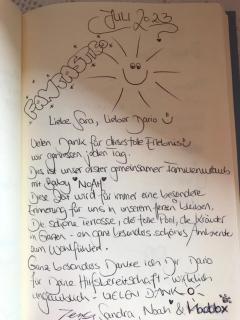 JULI 2023
FANTASTICO
Liebe Sara, Lieber Dario
Vielen Dank für dieses tolle Erlebnis
wir genossen jeden Tag.
Das ist unser erster gemeinsamer Familienurlaub
mit Baby "NOAH"
Diese wird für immer eine besondere
Erinnerung für uns in unserem Herzen bleiben.
Die schöne Terrasse, der tolle Pool, die Kräuter
im Garten - ein ganz besonders schönes Ambiente
zum Wohlfühlen.
Ganz besonders Danke ich Dir Dario
für Deine Hilfsbereitschaft - wirklich
unglaublich - VIELEN DANK
Sandra, Noah &